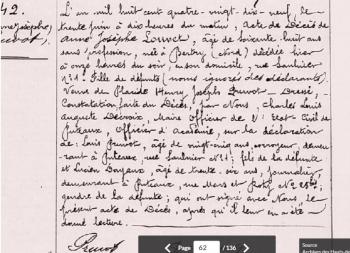 42.
L'an mil huit cent quatre-vingt-dix-neuf, le
trente juin à dix heures du matin, Acte de Décès de
Anne Josèphe Louvet, âgée de soixante huit ans
sans profession, née à Bertry (Nord) décédée hier
à onze heures du soir, en son domicile, rue Saulnier
n° 31. Fille de défunts (nous ignorés des déclarants).
Veuve de Placide Henry Joseph Pruvot - Dressé,
Constatation faite du Décès, par Nous, Charles Louis
Auguste Maire Officier de l'Etat Civil de
Puteaux, Officier d'Académie, sur la déclaration
de: Louis Pruvot, âgé de vingt-cinq ans,
demeurant à Puteaux, rue Saulnier n° 31; fils de la défunte
et Lucien âgé de trente-six ans, journalier,
demeurant à Puteaux, rue Mars et Roty, N°
gendre de la défunte; qui ont signé avec Nous, le
présent acte de Décès, après qu'il leur en a été
donné lecture.
Pruvot
Page 62 / 136
Source